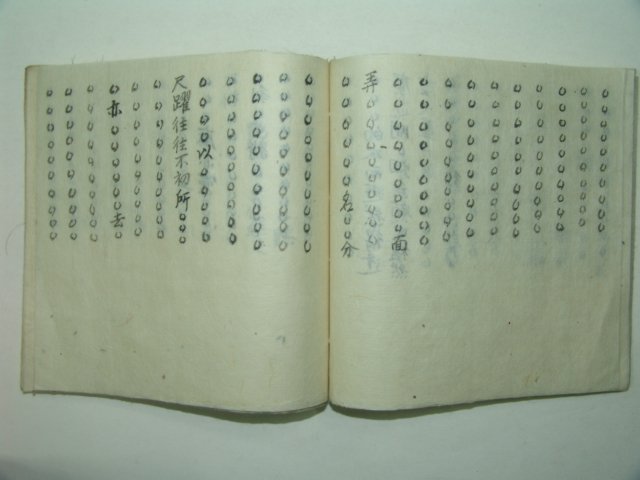 面
弄
名分
以
尺躍往往不初所
亦去